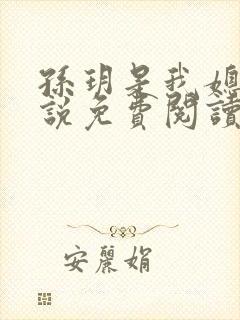 孫玥是我媳
說免費閱讀
安麗娟